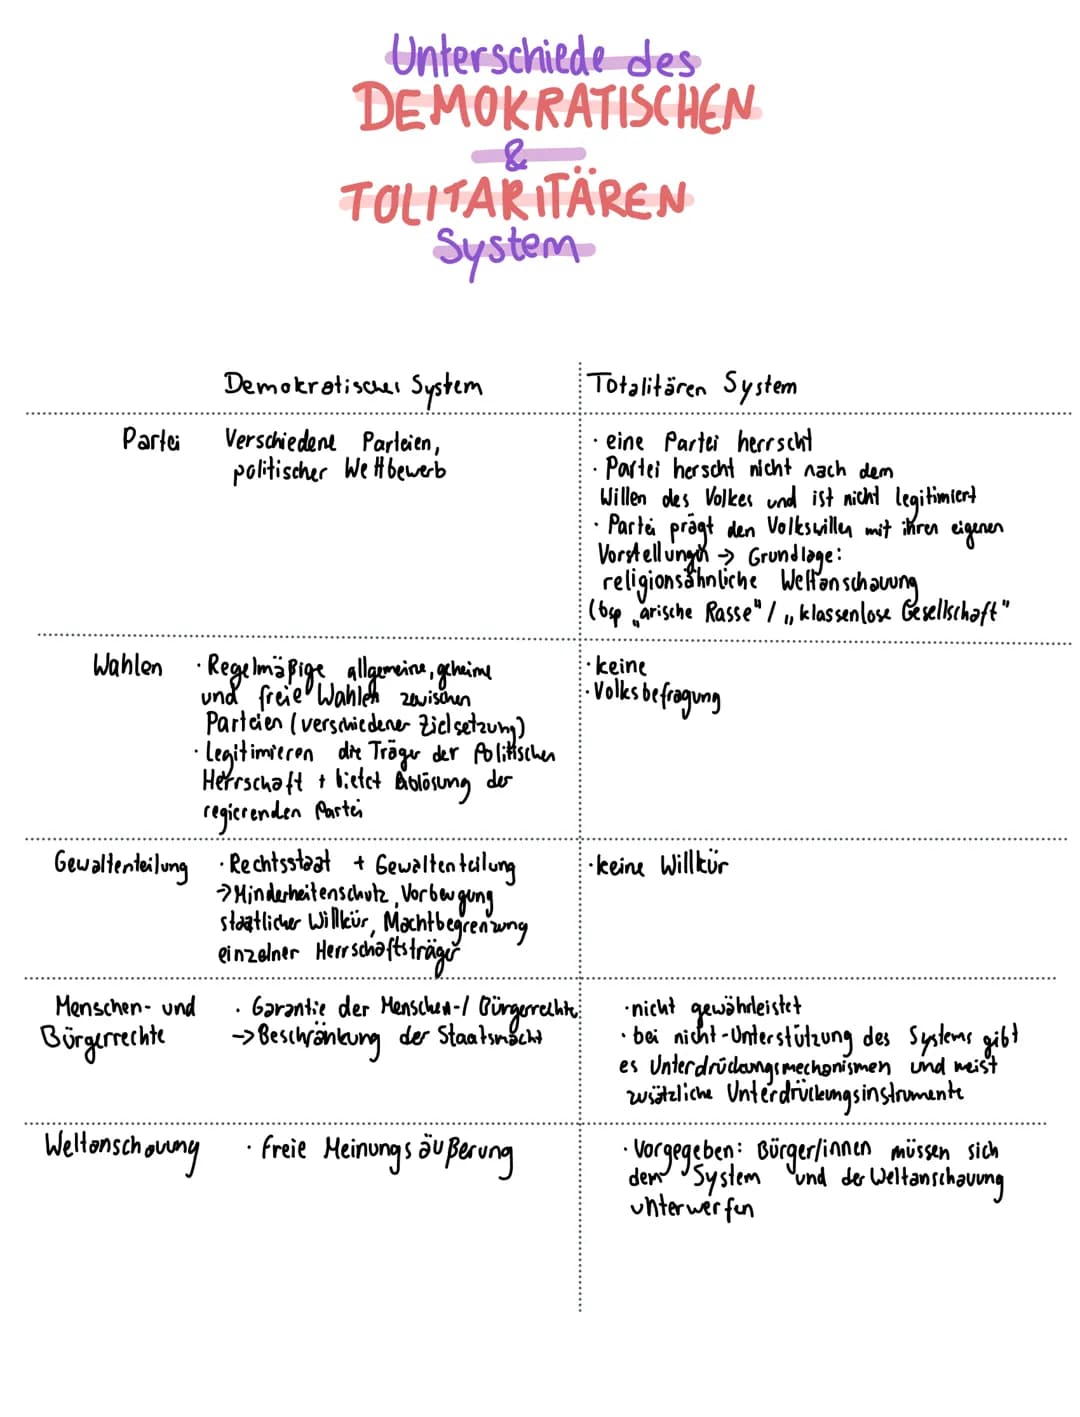 Unterschiede des
DEMOKRATISCHEN
&
TOLITARITÄREN
System
Demokratischer System
Totalitären System
Partei
Verschiedene Parteien,
politischer Wettbewerb
· eine Partei herrscht
· Partei herscht nicht nach dem
Willen des Volkes und ist nicht legitimiert
· Partei prägt den Volkswillen mit ihren eigenen
Vorstellungen → Grundlage:
religionsähnliche Weltanschauung
(bsp „arische Rasse" / „klassenlose Gesellschaft"
Wahlen
· Regelmäßige allgemeine, geheime
und freie Wahlen zwischen
Parteien (verschiedener Zielsetzung)
· Legitimieren die Träger der Politischen
Herrschaft + bietet Ablösung der
regierenden Partei
· keine
· Volksbefragung
Gewaltenteilung
· Rechtsstaat + Gewaltenteilung
→ Minderheitenschutz, Vorbeugung
staatlicher Willkür, Machtbegrenzung
einzelner Herrschaftsträger
· keine Willkür
Menschen- und
Bürgerrechte
· Garantie der Menschen-/ Bürgerrechte
→ Beschränkung der Staatsmacht
· nicht gewährleistet
· bei nicht-Unterstützung des Systems gibt
es Unterdrückungsmechanismen und meist
zusätzliche Unterdrückungsinstrumente
Weltanschauung
· Freie Meinungsäußerung
· Vorgegeben: Bürger/innen müssen sich
dem System und der Weltanschauung
unterwerfen